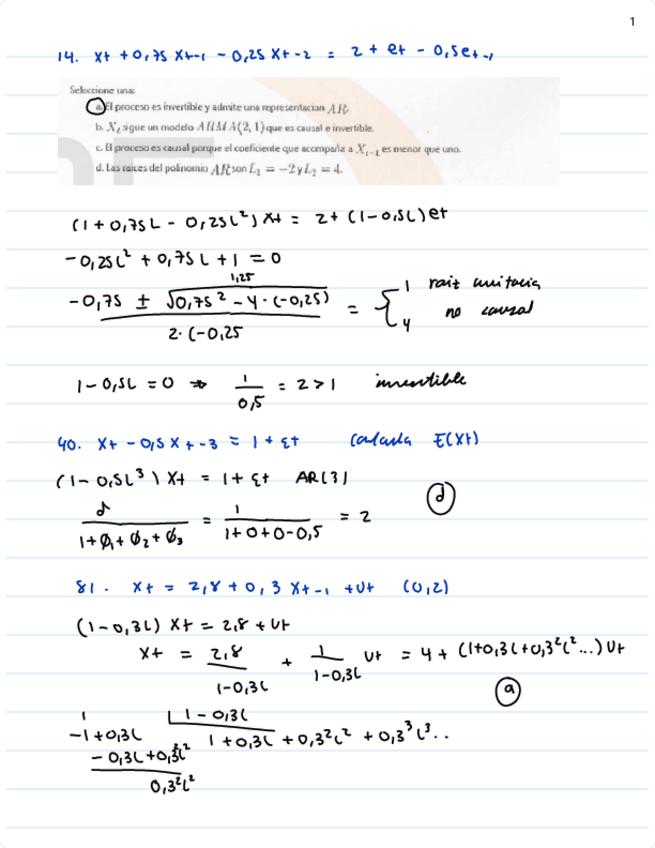 1
14. Xt + 0,75 Xt-1 - 0,25 Xt-2 = 2 + et - 0,5et-1
Seleccione una:
a. El proceso es invertible y admite una representacion AR.
b. Xt sigue un modelo ARMA(2, 1) que es causal e invertible.
c. El proceso es causal porque el coeficiente que acompaña a Xt-1 es menor que uno.
d. Las raices del polinomio AR son L1 = -2 y L2 = 4.
(1 + 0,75L - 0,25L²) Xt = 2 + (1-0,5L) et
-0,25L² + 0,75L + 1 = 0
1,25
-0,75 ± √0,75² - 4·(-0,25) = { 1 rait unitaria
2·(-0,25 4 no causal
1-0,5L = 0 ⇒ 1/0,5 = 2 > 1 invertible
40. Xt - 0,5Xt-3 = 1 + εt Calcula E(Xt)
(1-0,5L³) Xt = 1 + εt AR(3)
d
δ/1+ϕ1+ϕ2+ϕ3 = 1/1+0+0-0,5 = 2
81. Xt = 2,8 + 0,3 Xt-1 + Ut (0,2)
(1-0,3L) Xt = 2,8 + Ut
Xt = 2,8/1-0,3L + 1/1-0,3L Ut = 4 + (1+0,3L+0,3²L²...) Ut
a
1 1-0,3L
-1+0,3L 1+0,3L+0,3²L²+0,3³L³..
-0,3L+0,3²L²
0,3²L²